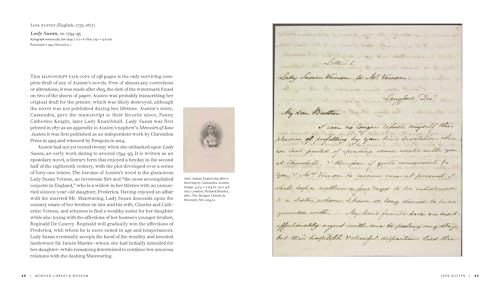 JANE AUSTEN (English, 1775–1817)
Lady Susan, ca. 1794–95
THIS MANUSCRIPT FAIR COPY of 158 pages is the only surviving com-
plete draft of any of Austen's novels. Free of almost any corrections
or alterations, it was made after 1805, the date of the watermark found
on two of the sheets of paper. Austen was probably transcribing her
original draft for the printer, which was likely destroyed, although
the novel was not published during her lifetime. Austen's sister,
Cassandra, gave the manuscript to their favorite niece, Fanny
Catherine Knight, later Lady Knatchbull. Lady Susan was first
printed in 1871 as an appendix to Austen's nephew's Memoirs of Jane
Austen; it was first published as an independent work by Clarendon
Press in 1925 and reissued by Penguin in 2014.
Austen had not yet turned twenty when she embarked upon Lady
Susan, an early work dating to around 1794–95. It is written as an
epistolary novel, a literary form that enjoyed a heyday in the second
half of the eighteenth century, with the plot developed over a series
of forty-one letters. The heroine of Austen's novel is the glamorous
Lady Susan Vernon, an irreverent flirt and "the most accomplished
coquette in England," who is a widow in her thirties with an unmar-
ried sixteen-year-old daughter, Frederica. Having enjoyed an affair
with the married Mr. Manwaring, Lady Susan descends upon the
country estate of her brother-in-law and his wife, Charles and Cath-
erine Vernon, and schemes to find a wealthy suitor for her daughter
while also toying with the affections of her hostess's younger brother,
Reginald De Courcy. Reginald will gradually win the affections of
Frederica, with whom he is more suited in age and temperament.
Lady Susan eventually accepts the hand of the wealthy and besotted
landowner Sir James Martin—whom she had initially intended for
her daughter—while remaining determined to continue her amorous
relations with the dashing Manwaring.
Jane Austen. Engraving after a
drawing by Cassandra Austen.
The Morgan Library &
Museum,
Letter 1.
Lady Susan Vernon to Mr Vernon.
Langford, Dec
My dear Brother
I can no longer refuse myself the
pleasure of profiting by your kind invitation when
we last parted, of spending some weeks with you
at Churchill, & therefore if quite convenient to
you & Mrs Vernon to receive me at present, I
shall hope within a few days to be introduced
to a Sister whom I have so long desired to be ac-
quainted with. My kind friends here are most
affectionately urgent with me to prolong my stay,
but their hospitable & chearful dispositions lead them
48 | MORGAN LIBRARY & MUSEUM
JANE AUSTEN | 49